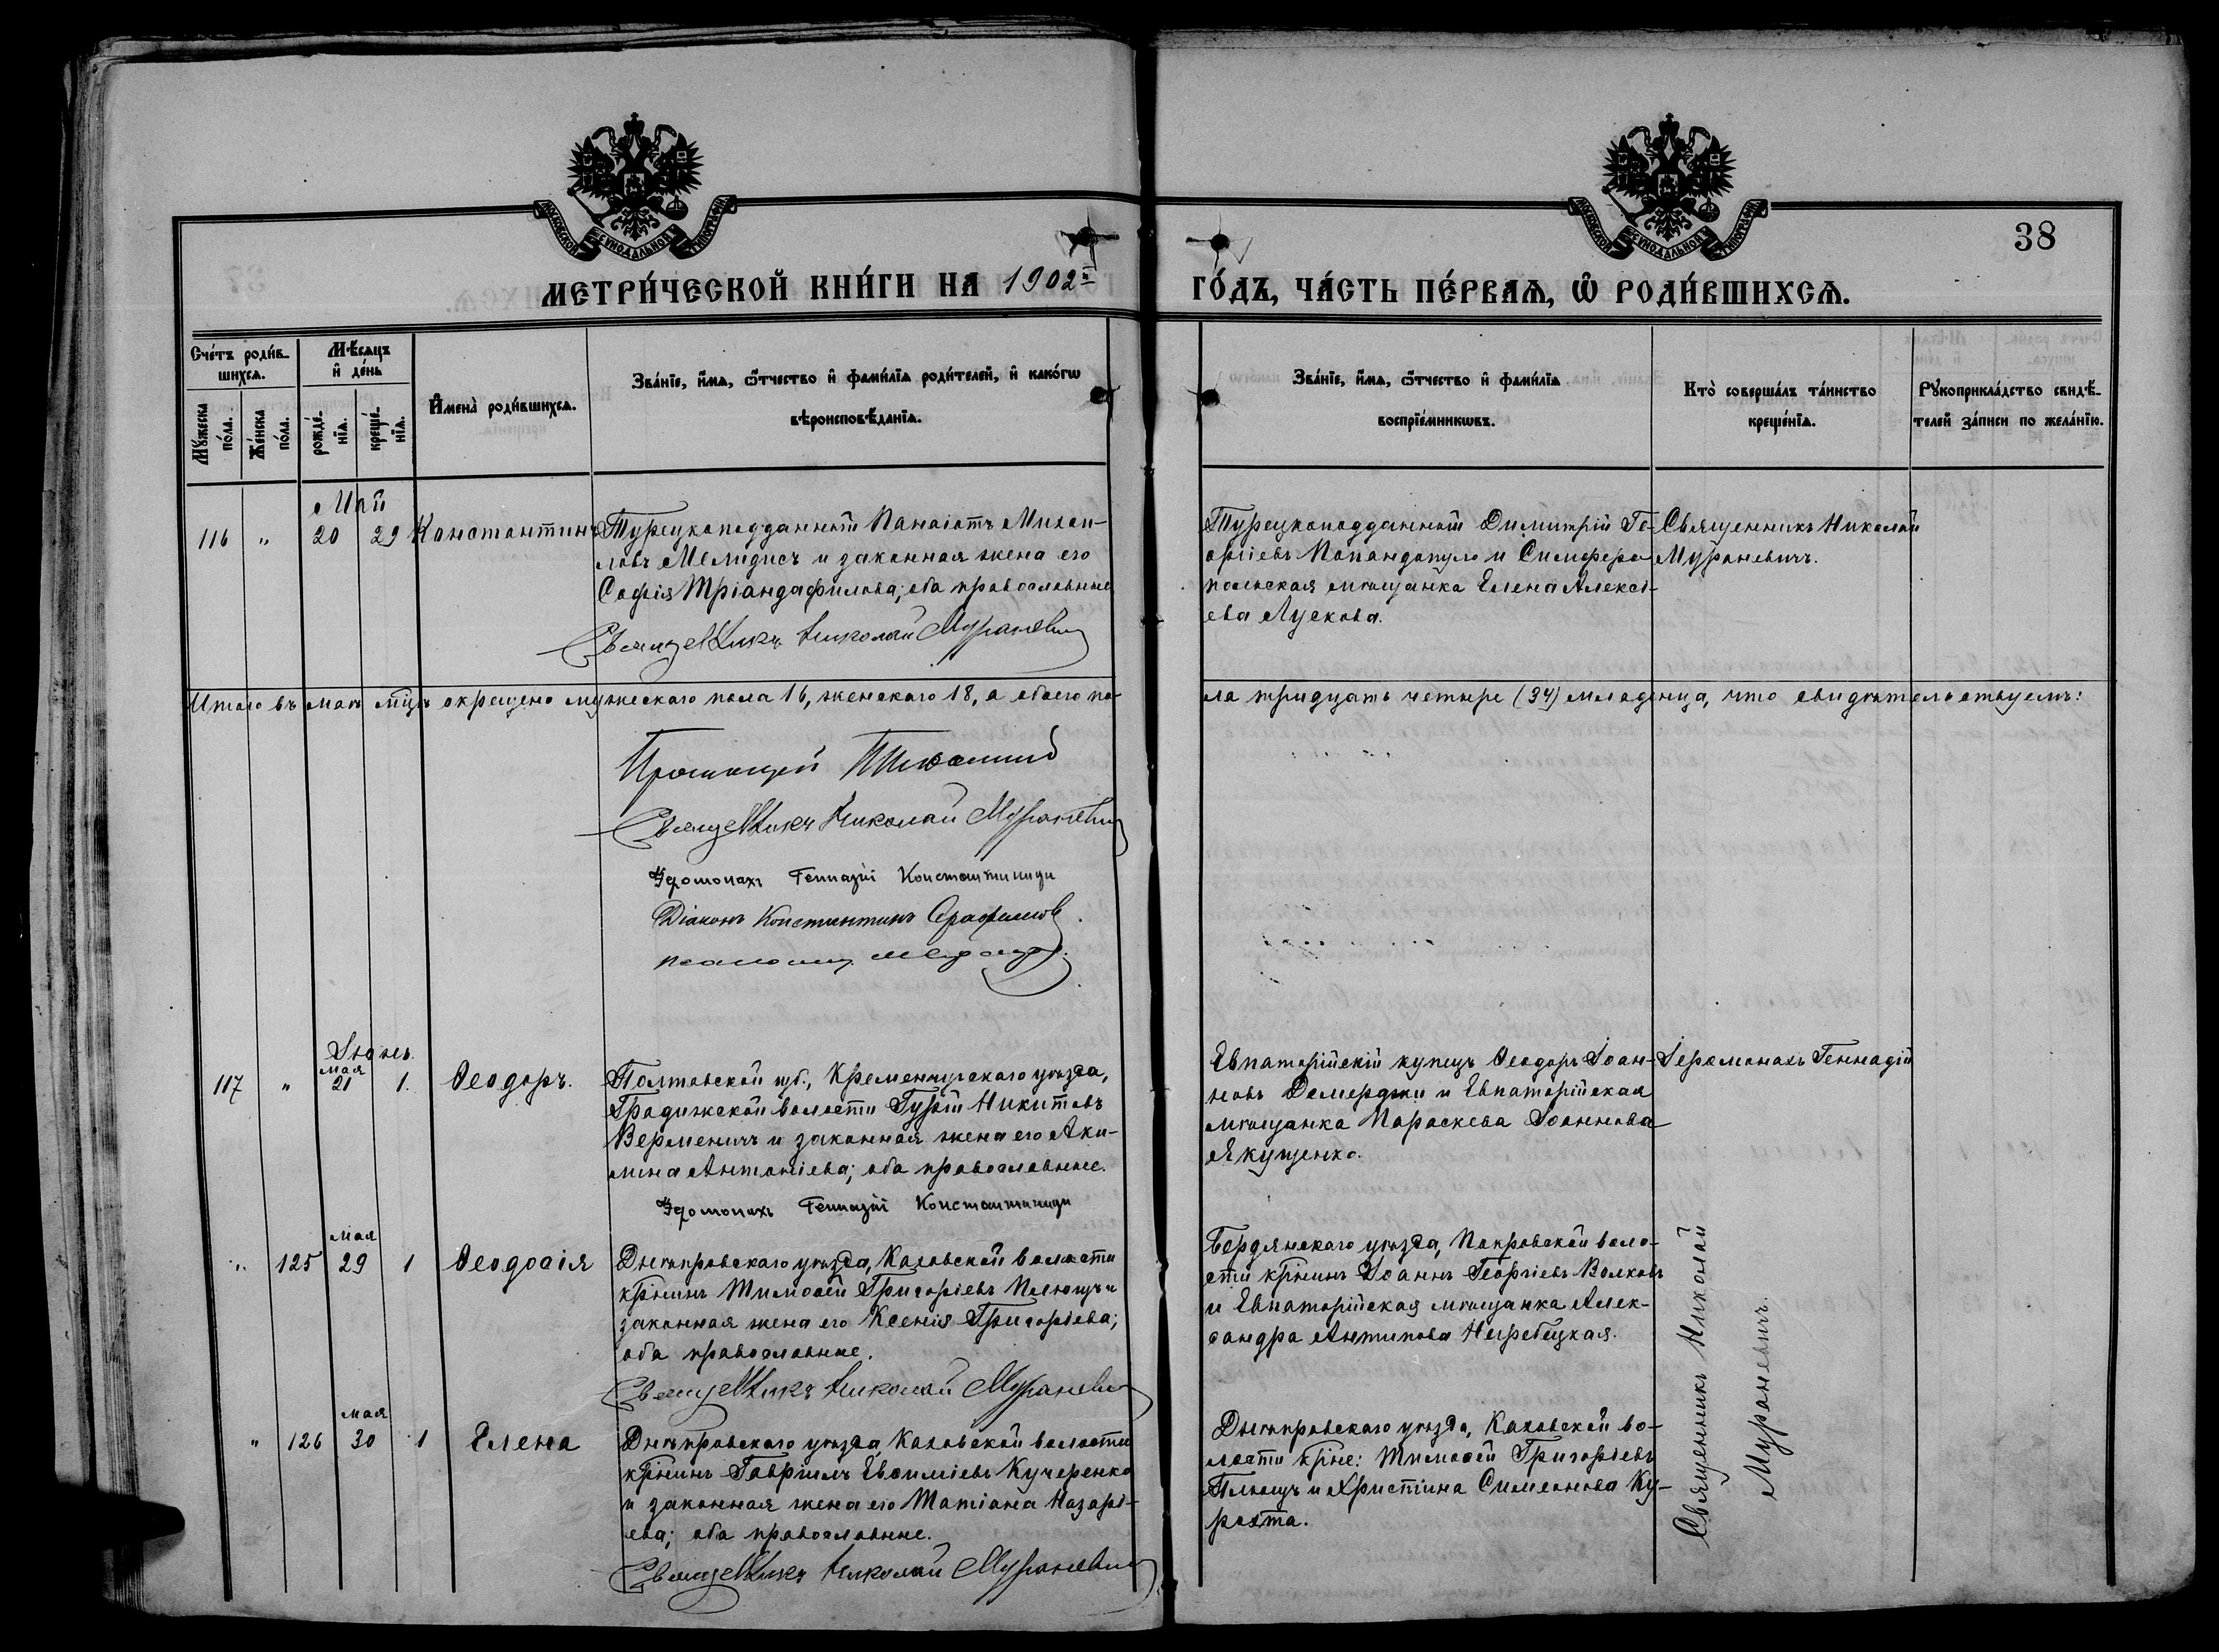 МОСКОВСКОЙ СѴНОДАЛЬНОЙ ТИПОГРАФІИ
МОСКОВСКОЙ СѴНОДАЛЬНОЙ ТИПОГРАФІИ
38
МЕТРИ́ЧЕСКОЙ КНИ́ГИ НА 1902й ГО́ДЪ, ЧА́СТЬ ПЕ́РВАѦ, Ѡ РОДИ́ВШИХСѦ.
Сче́тъ роди́в-
шихсѧ.
Мѣ́сѧцъ
и҆ де́нь
Мꙋ́жеска
по́ла.
Же́нска
по́ла.
рожде́-
нїѧ.
креще́-
нїѧ.
И҆мена̀ роди́вшихсѧ.
Зва́нїе, и҆́мѧ, ѻ҆́тчество и҆ фами́лїѧ роди́телей, и҆ како́гѡ
вѣроисповѣ́данїѧ.
Зва́нїе, и҆́мѧ, ѻ҆́тчество и҆ фами́лїѧ
воспрїе́мникѡвъ.
Кто̀ соверша́лъ та́инство
креще́нїѧ.
Рꙋкоприкла́дство свидѣ́-
телей за́писи по жела́нїю.
Май
116 " 20 29 Константинъ
Турецкоподданный Панаіотъ Михаи-
ловъ Мелидисъ и законная жена его
Софія Тріандафилова; оба православные
Священникъ Николай Мураневич
Турецкоподданный Димитрій Ге-
оргіевъ Попандопуло и Симферо-
польская мѣщанка Елена Алексѣ-
ева Лускова.
Священникъ Николай
Мураневичъ.
Итого въ маѣ мцѣ окрещено мужескаго пола 16, женскаго 18, а обоего по-
ла тридцать четыре (34) младенца, что свидѣтельствуемъ:
Протоіерей
Священникъ Николай Мураневич
Іеромонахъ Геннадій Константиниди
Діаконъ Константинъ Серафимов
Іюнь.
мая
117 " 21 1. Ѳеодоръ.
Полтавской губ., Кременчугскаго уѣзда,
Градижской волости Гурій Никитовъ
Верменичъ и законная жена его Аки-
лина Антоніева; оба православные.
Іеромонахъ Геннадій Константиниди
Евпаторійскій купецъ Ѳеодоръ Іоан-
новъ Демерджи и Евпаторійская
мѣщанка Параскева Іоаннова
Якущенко.
Іеромонахъ Геннадій
мая
" 125 29 1 Ѳеодосія
Днѣпровскаго уѣзда, Каховской волости
крѣнинъ Тимоѳей Григоріевъ Плющъ и
законная жена его Ксенія Григоріева;
оба православные.
Священникъ Николай Мураневич
Бердянскаго уѣзда, Покровской воло-
сти крѣнинъ Іоаннъ Георгіевъ Волковъ
и Евпаторійская мѣщанка Алек-
сандра Антипова Негребецкая.
мая
" 126 30 1 Елена
Днѣпровскаго уѣзда, Каховской волости
крѣнинъ Гавріилъ Евѳиміевъ Кучеренко
и законная жена его Татіана Назарі-
ева; оба православные.
Священникъ Николай Мураневич
Днѣпровскаго уѣзда, Каховской во-
лости крѣне: Тимоѳей Григоріевъ
Плющъ и Христина Симеонова Ку-
рахта.
Священникъ Николай
Мураневичъ.